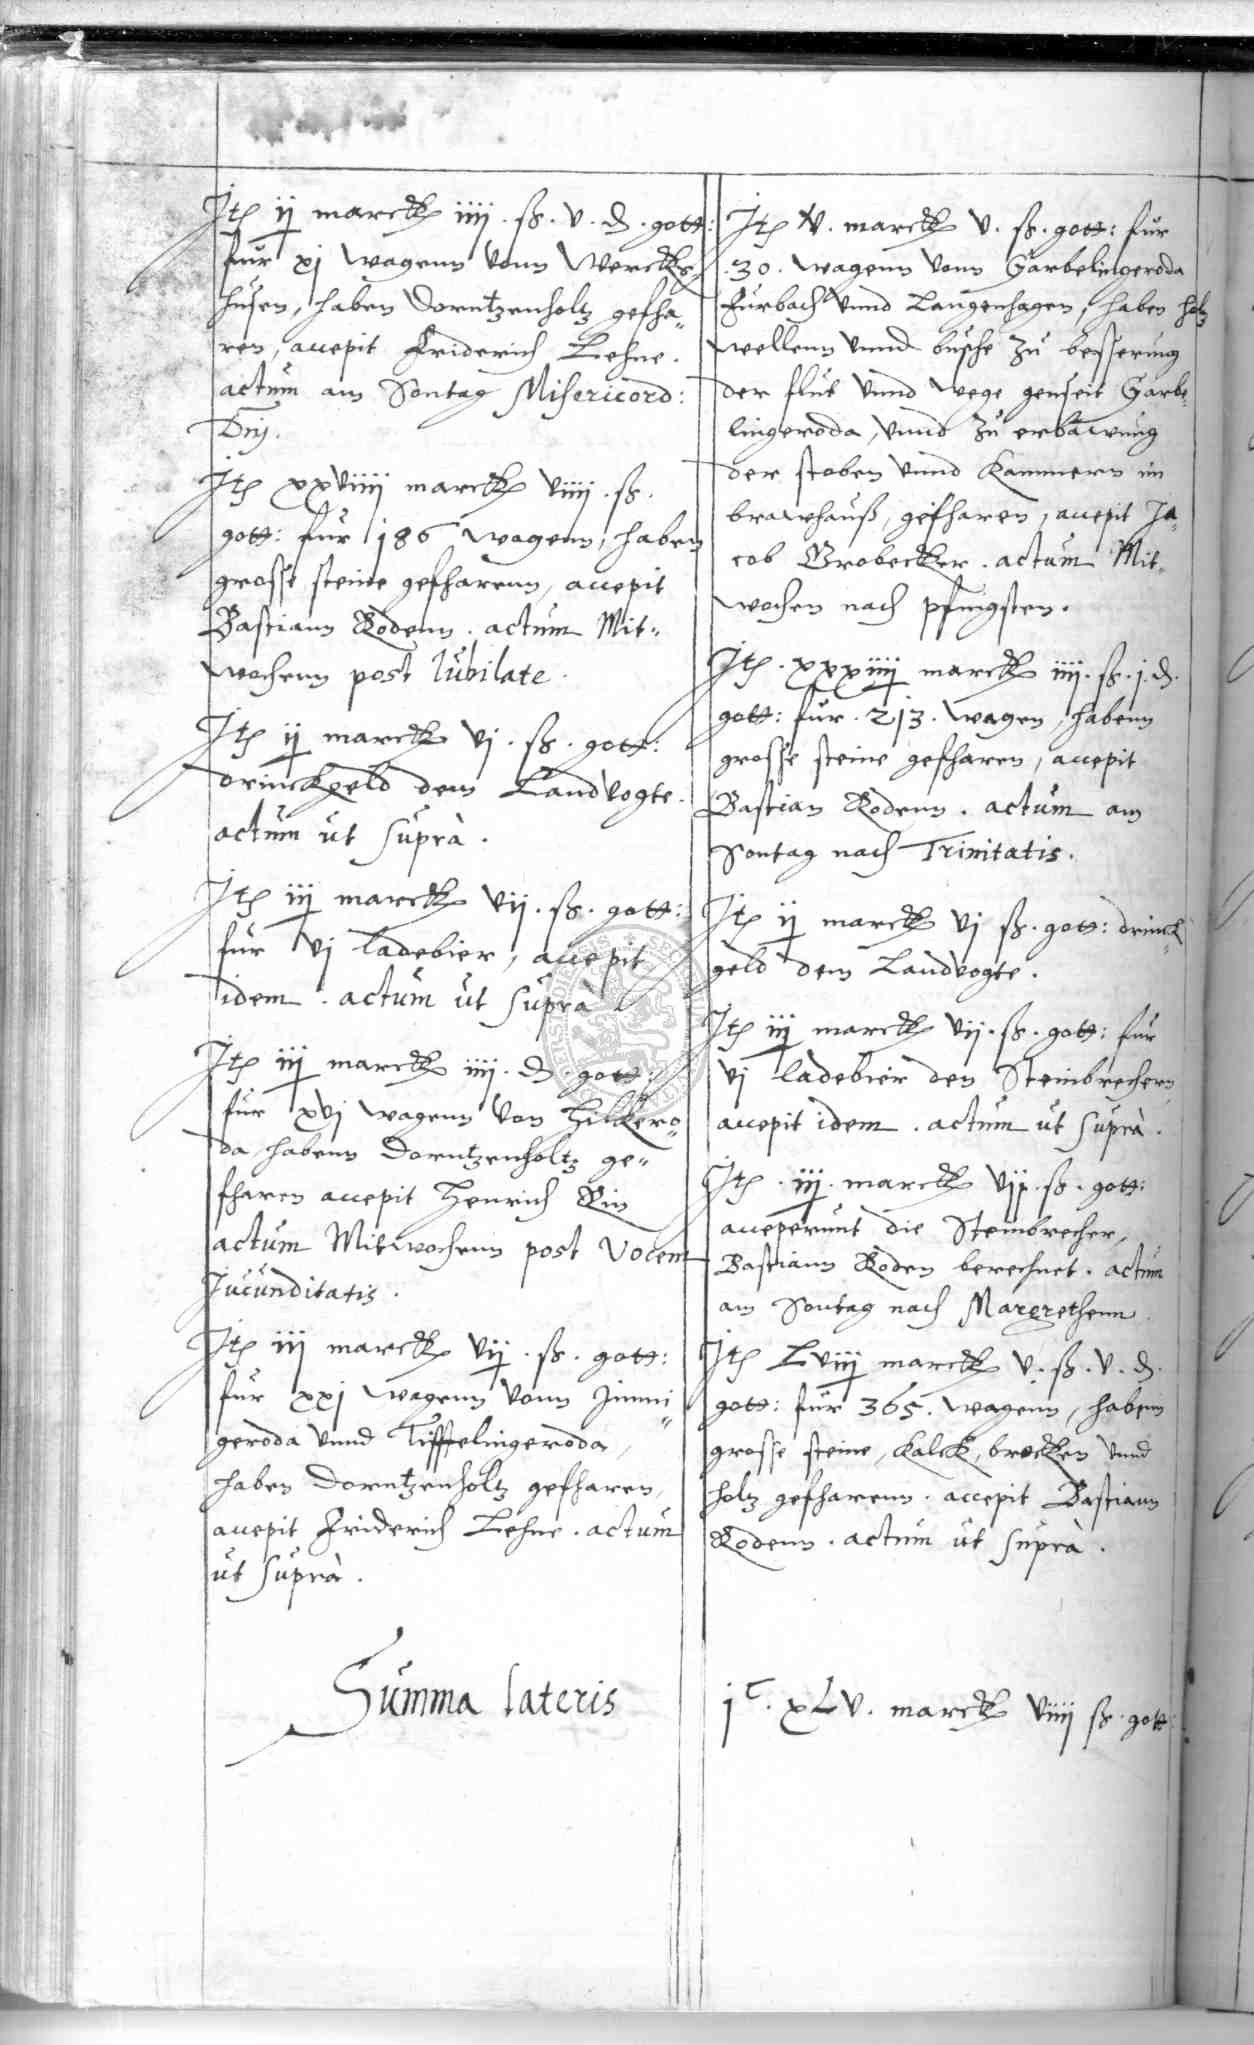 Jt ij marck iiij . ß . v . d . gott:
fur xj wagenn vonn Wercks,,
husen, haben Dorntzenholtz gefha,,
ren, accepit Friderich Lehne .
actum am Sontag Misericord:
Dnj.
Jt xxviiij marck viiij . ß .
gott: fur 186 wagenn, haben
grosse steine gefharenn, accepit
Bastiann Rodenn . actum Mit,,
wochenn post Iubilate .
Jt ij marck vj . ß . gott:
drinckgeld dem Landvogte .
actum ut suprà .
Jt iij marck vij . ß . gott:
fur vj ladebier, accepit
idem . actum ut suprà
Jt iij marck iiij . d . gott:
fur xvj wagenn von Hilkero,,
da habenn Dorntzenholtz ge,,
fharen accepit Henrich
actum Mitwochenn post Vocem
Jucunditatis .
Jt iij marck vij . ß . gott:
fur xxj wagenn vonn Jmmi,,
geroda vnnd Tifftelingeroda,
haben Dorntzenholtz gefharen,
accepit Friderich Lehne . actum
ut suprà .
Summa lateris
Jt v . marck v . ß . gott: fur
. 30 . wagenn vonn Garbelingeroda
Furbach vnnd Langenhagen, haben holtz
wellenn vnnd busche zu besserung
der flut vnnd wege genseit Garbe,,
lingeroda, vnnd zu erbawung
der stoben vnnd Kammern im
brawhauß, gefharen, accepit Ja,,
cob Grobecker . actum Mit,,
wochen nach pfingsten .
Jt . xxxiiij marck iiij . ß . j . d .
gott: fur . 213 . wagen, habenn
grosse steine gefharen, accepit
Bastian Rodenn . actum am
Sontag nach Trinitatis .
Jt ij marck vj ß . gott: drinck,,
geld dem Landvogte .
Jt iij marck vij . ß . gott: fur
vj ladebier den Steinbrechern
accepit idem . actum ut suprà .
Jt . iij . marck vij . ß . gott:
acceperunt die Steinbrecher,
Bastiann Roden berechnet . actum
am Sontag nach Margrethenn .
Jt Lviij marck v . ß . v . d .
gott: fur 365 . wagenn, habenn
grosse steine, kalck, brocken vnnd
holtz gefharenn . accepit Bastiann
Rodenn . actum ut suprà .
j c . xLv . marck viiij ß . gott: